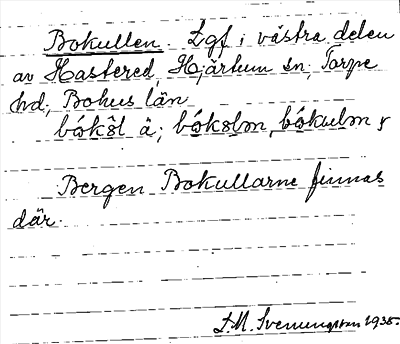 Bokullen. Lgf i västra delen
av Hastered, Hjärtum sn, Torpe
hd, Bohus län
bókòl ä; bókoln, bókuln f
Bergen Bokullarne finnas
där.
1935.